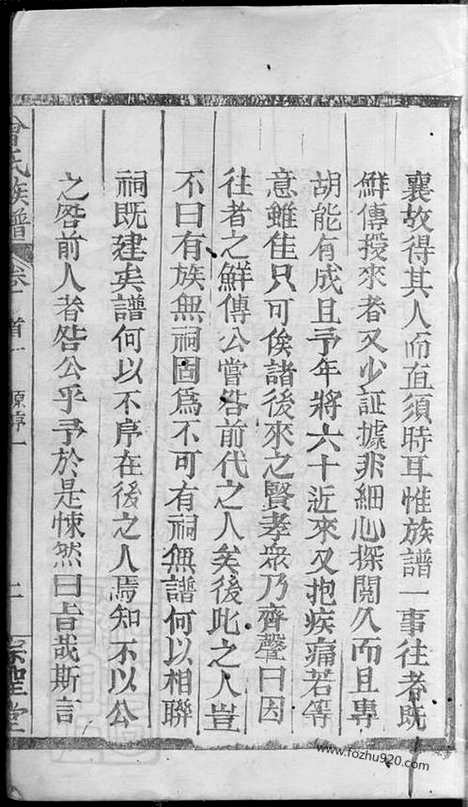 襄故得其人而直須時耳惟族譜一事往者既
鮮傳授來者又少証據非細心探閱久而且專
胡能有成且予年將六十近來又抱疾痛若等
意雖佳只可俟諸後來之賢孝眾乃齊聲曰因
往者之鮮傳公嘗咎前代之人矣後此之人豈
不曰有族無祠固為不可有祠無譜何以相聯
祠既建矣譜何以不序在後之人焉知不以公
之咎前人者咎公乎予於是悚然曰旨哉斯言
曾氏族譜 卷首一 原序一 二 宗聖堂
www.fozhu920.com